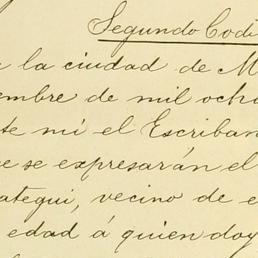 Segundo Codi
a la ciudad de M
embre de mil ocho
te mi el Escriban
e se expresarán el
ategui, vecino de e
edad á quien doy